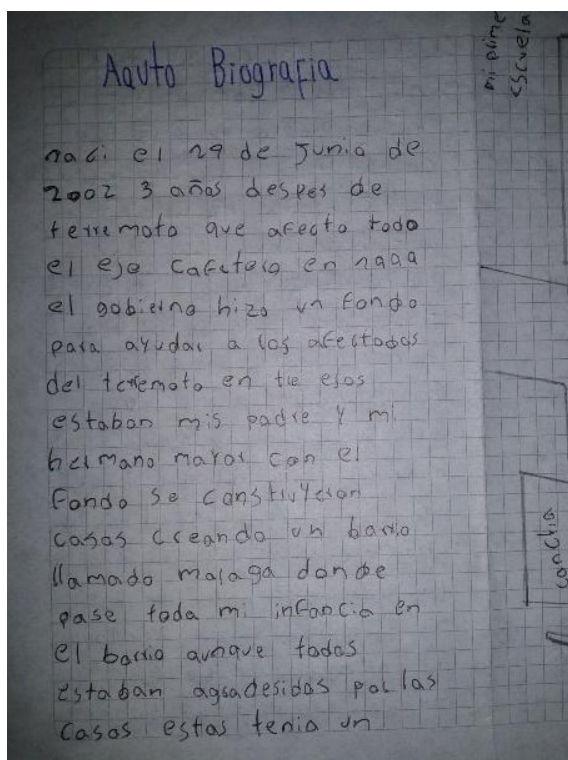 Aauto Biografia
naci el 29 de Junio de
2002 3 años despes de
terremoto que afecto todo
el eje cafetero en 1999
el gobierno hizo un fondo
para ayudar a los afectados
del terremoto en tre esos
estaban mis padre y mi
hermano mayor con el
fondo se construyeron
casas creando un barrio
llamado malaga donde
pase toda mi infancia en
el barrio aunque todos
estaban agradesidos por las
casas estas tenia un
mi prime
escuela
cancha